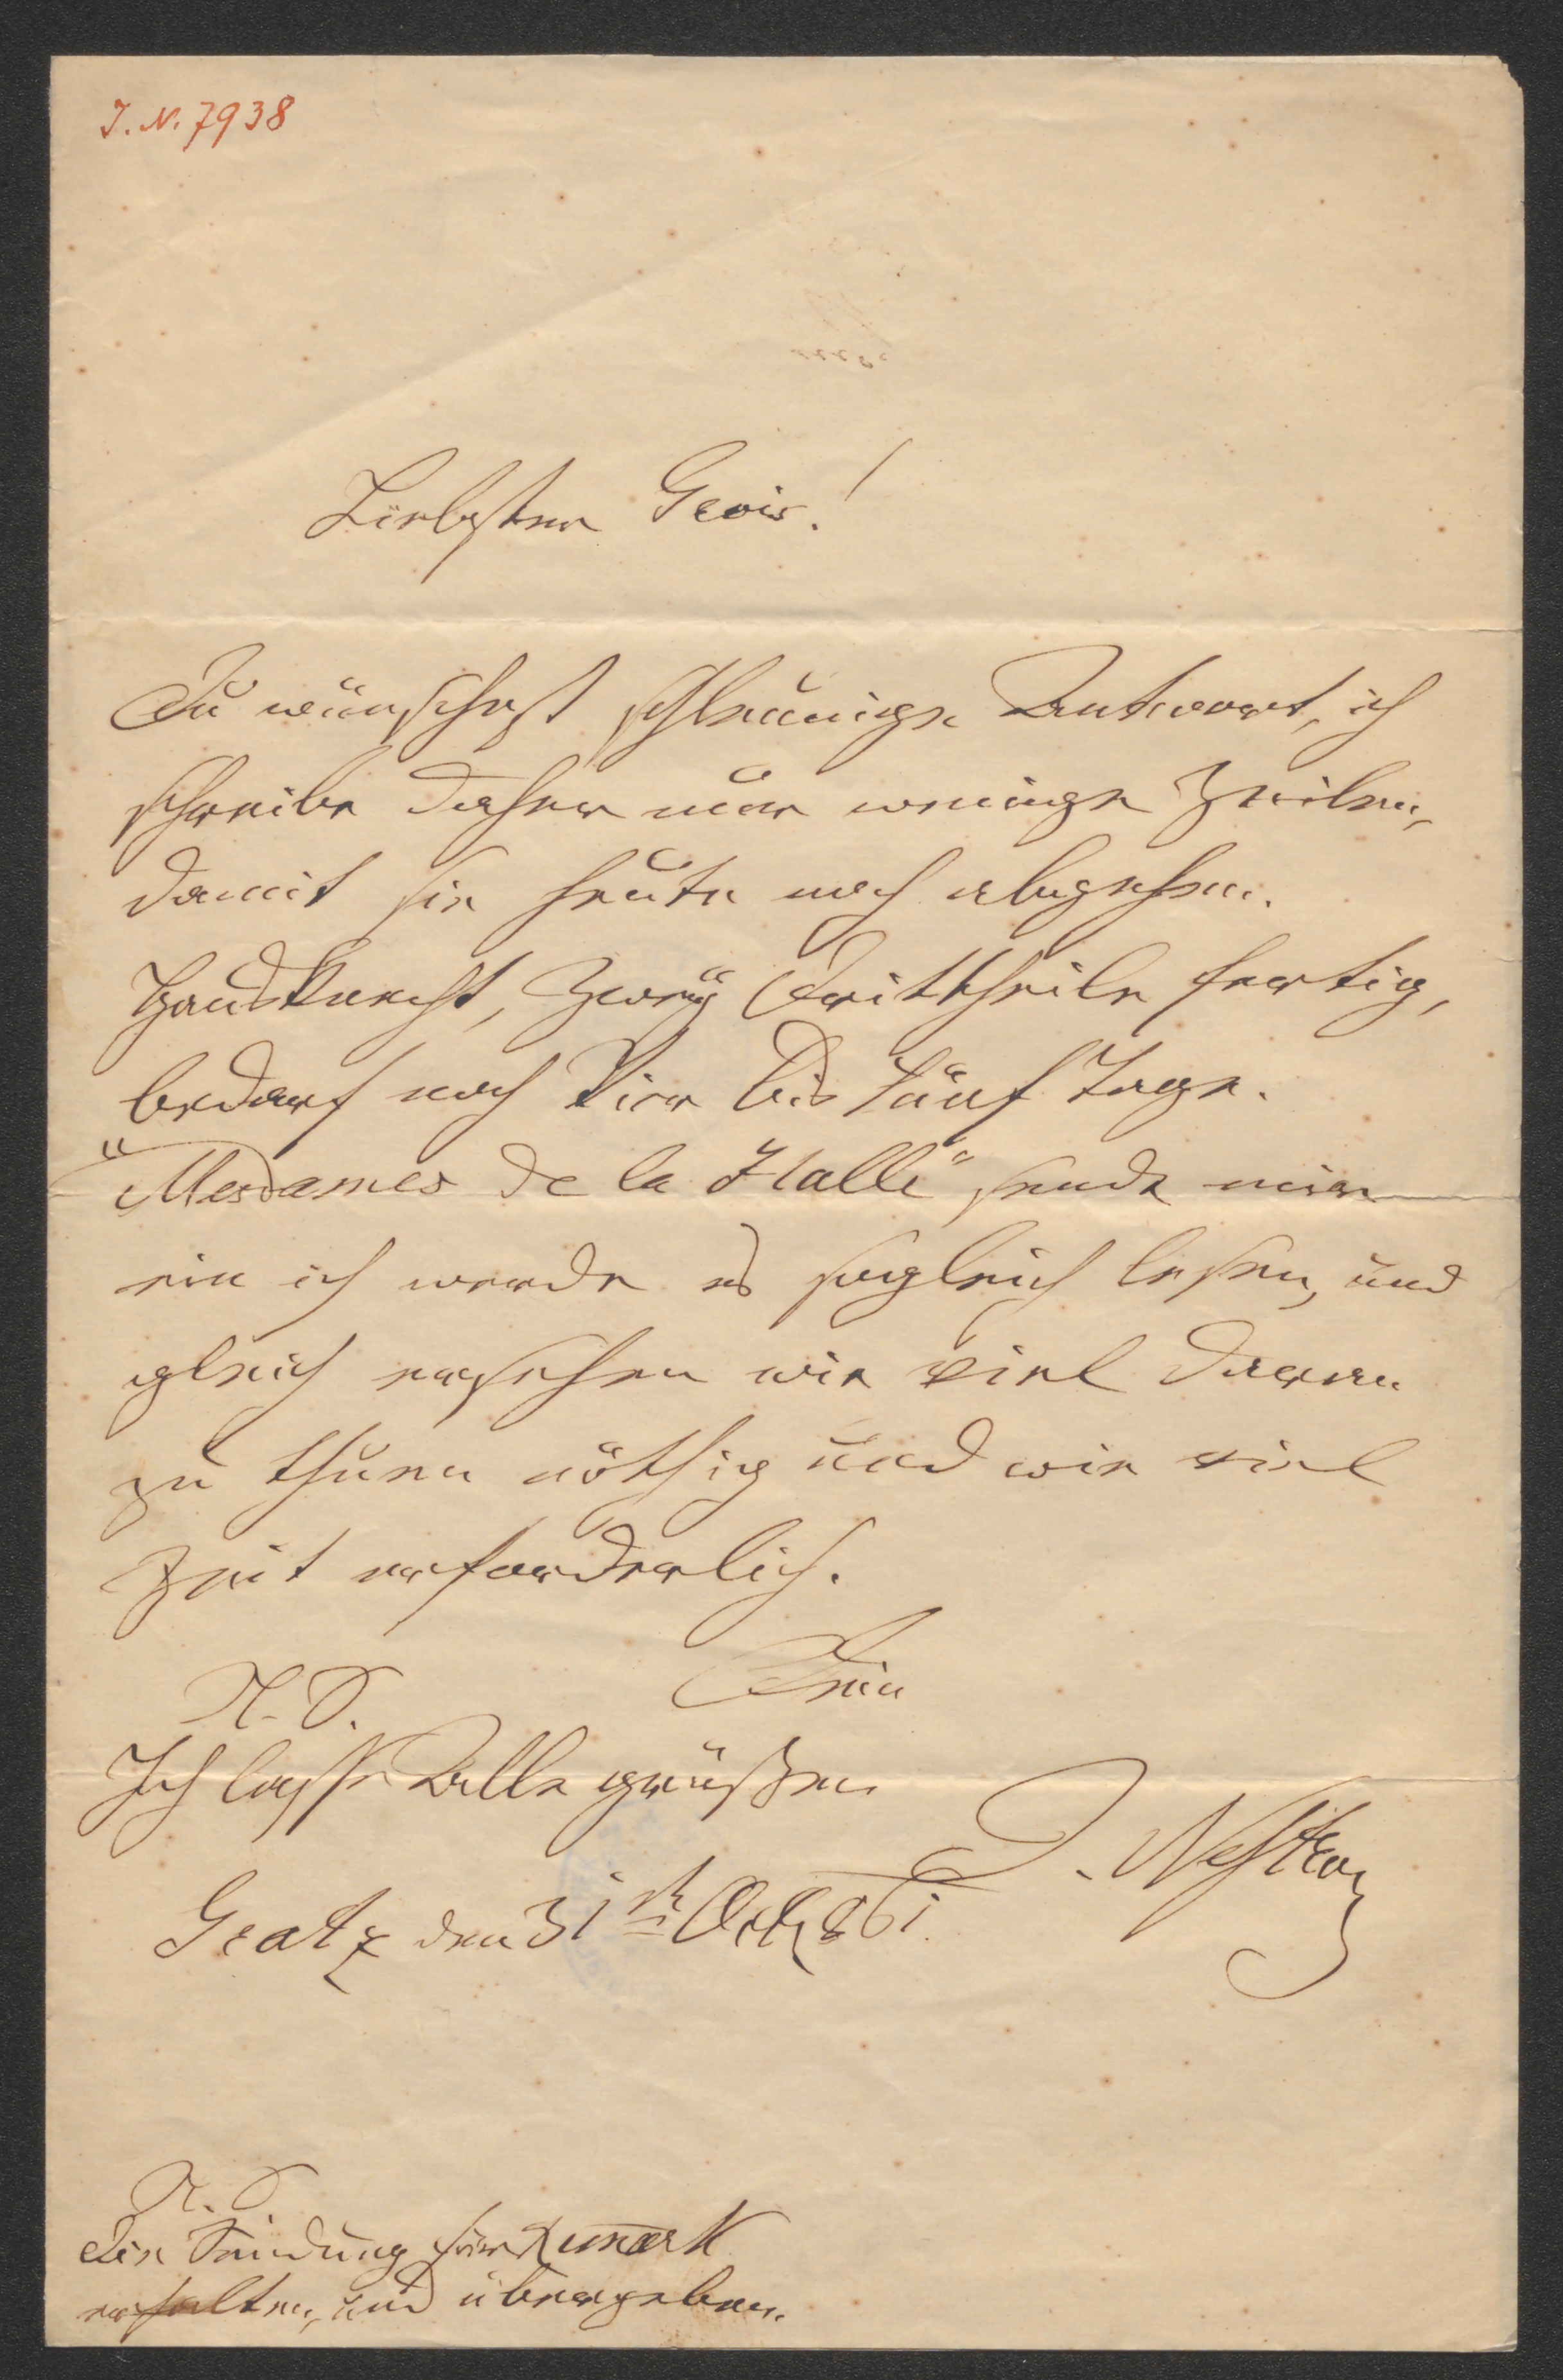 I. N. 7938
Liebster Grois!
Du wünschest schleunige Antwort, ich
schreibe daher nur wenige Zeilen,
damit sie heute noch abgehen.
Hausknecht, zwey Drittheile fertig,
bedarf noch Vier bis Fünf Tage.
"Mesdames de la Halle" sende mir
ein ich werde es sogleich lesen, und
gleich ersehen wie viel daran
zu thuen nöthig und wie viel
Zeit erforderlich.
Dein
N. S.
Ich lasse Alle grüßen
J. Nestroy
Gratz den 31ten Oct 861.
N. S.
Die Sendung für
erhalten, und übergeben.